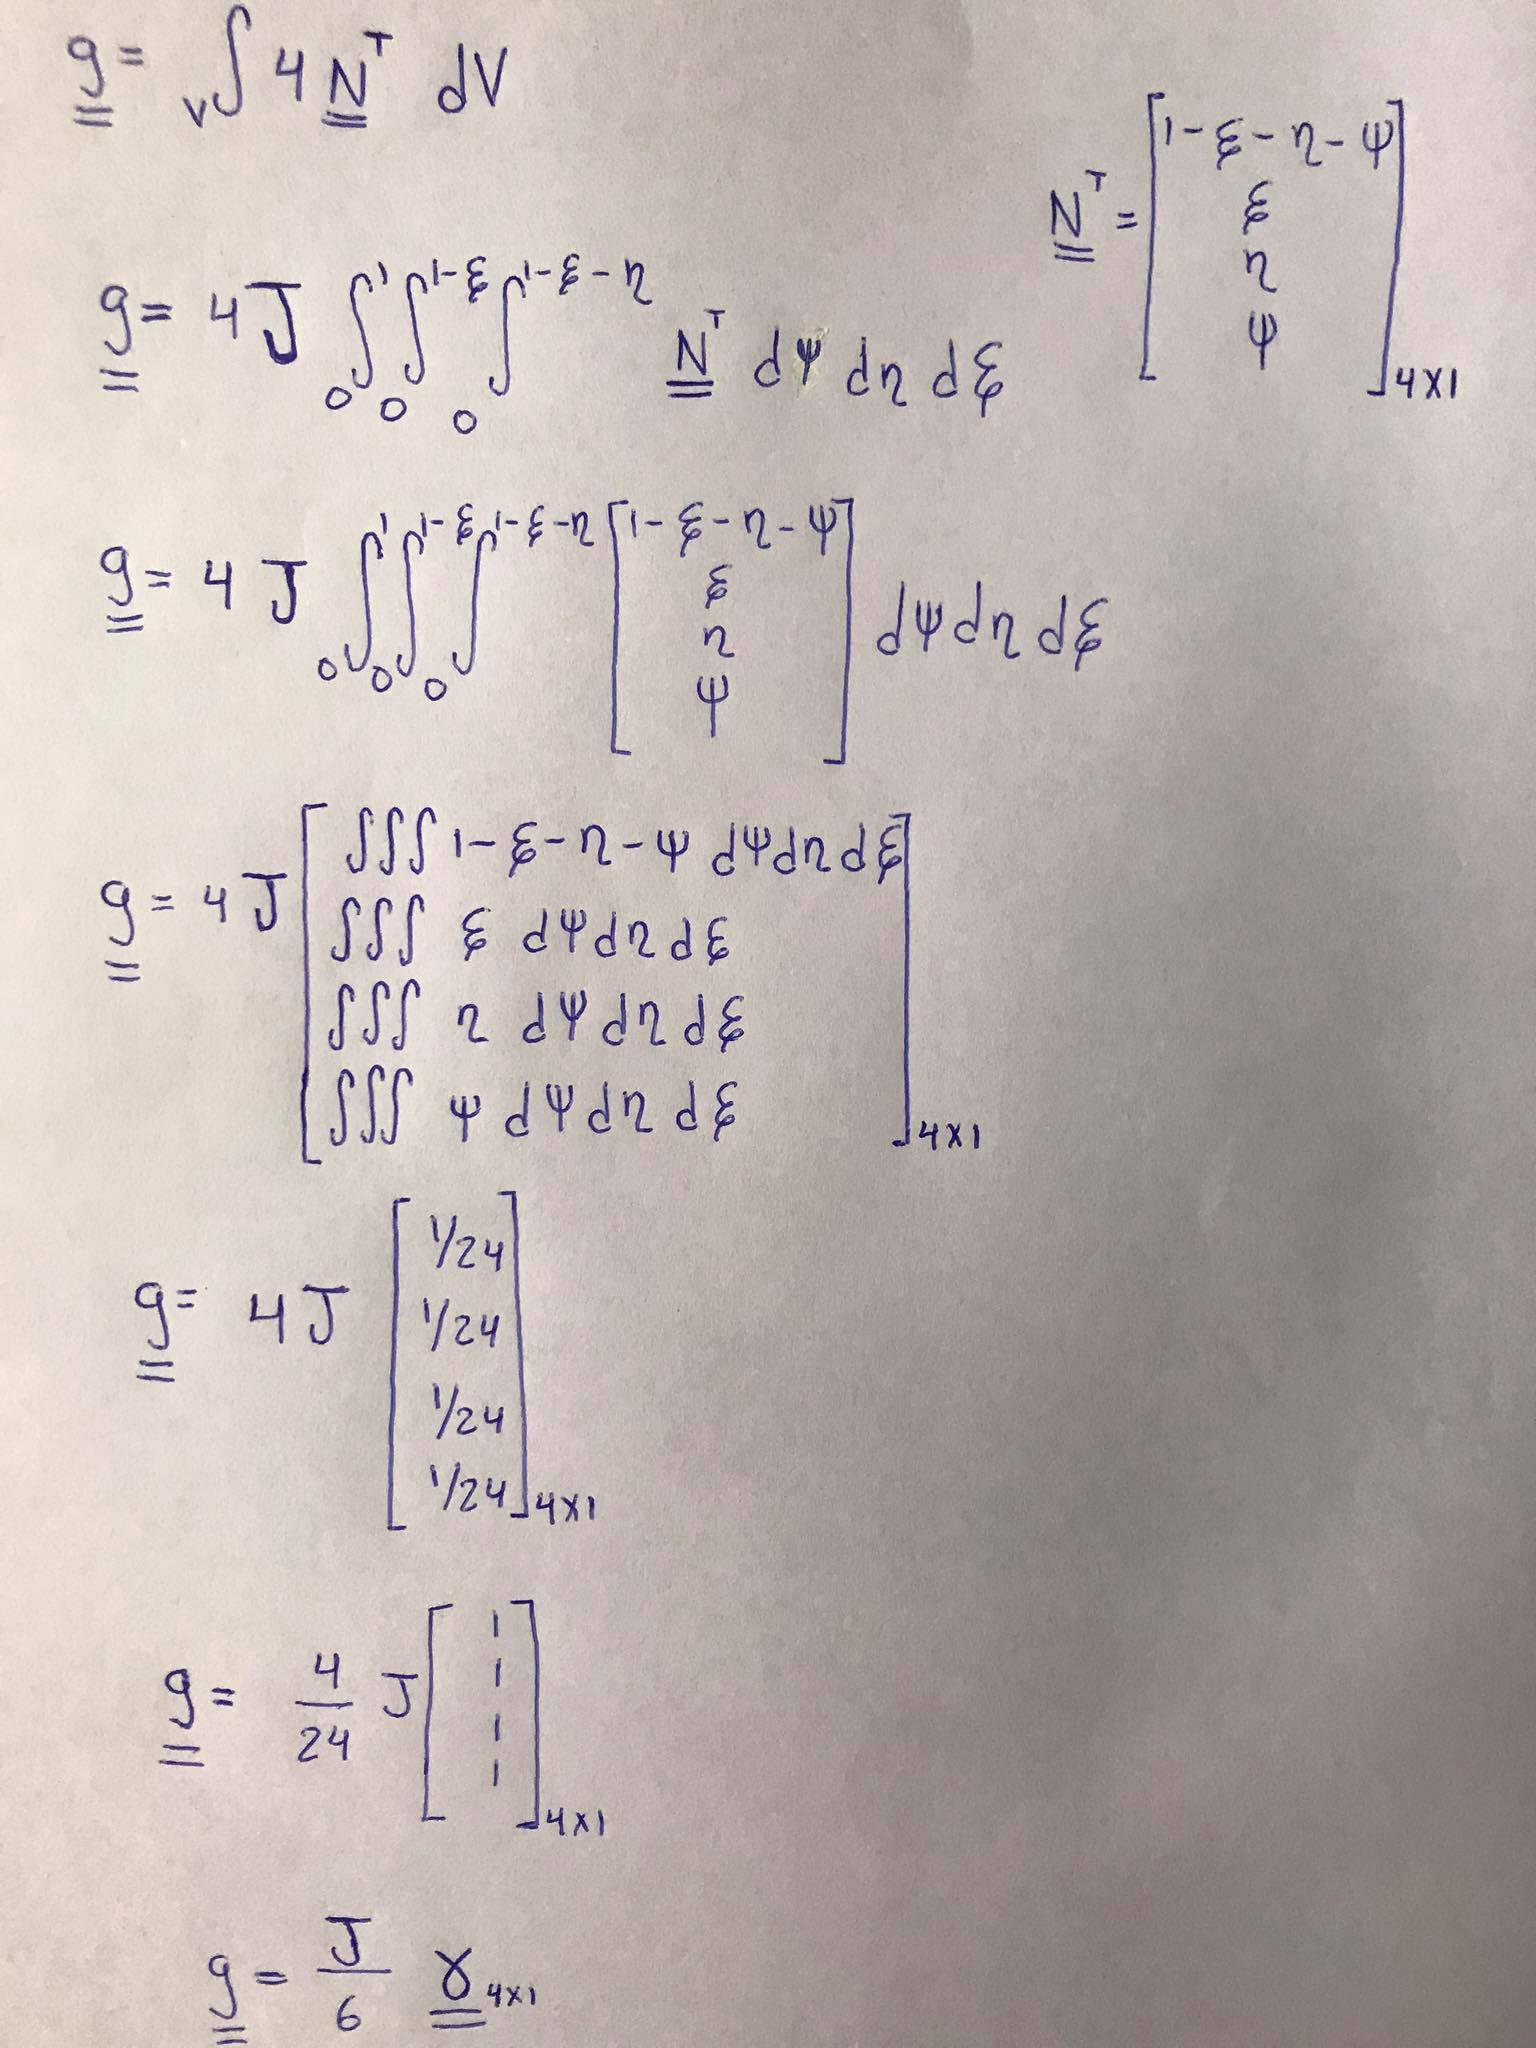 g = ᵥ∫ 4 Nᵀ dV
Nᵀ = [1-ξ-η-ψ
ξ
η
ψ]4x1
g = 4 J ∫₀¹ ∫₀^1-ξ ∫₀^1-ξ-η Nᵀ dψ dη dξ
g = 4 J ∫₀¹ ∫₀^1-ξ ∫₀^1-ξ-η [1-ξ-η-ψ
ξ
η
ψ] dψ dη dξ
g = 4 J [∫∫∫ 1-ξ-η-ψ dψ dη dξ
∫∫∫ ξ dψ dη dξ
∫∫∫ η dψ dη dξ
∫∫∫ ψ dψ dη dξ]4x1
g = 4 J [1/24
1/24
1/24
1/24]4x1
g = 4/24 J [1
1
1
1]4x1
g = J/6 γ4x1